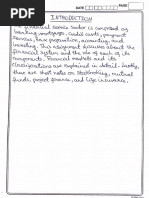 DATE
PAGE
INTRODUCTION
The financial service sector is comprised of
banking mortgages, credit cards, payment
services, tax preparation, accounting, and
investing. This assignment discusses about the
financial system and the role of each of its
components. Financial markets and its
classifications are explained in detail. Lastly,
there are short notes on stockbroking, mutual
funds, project finance, and life insurance.